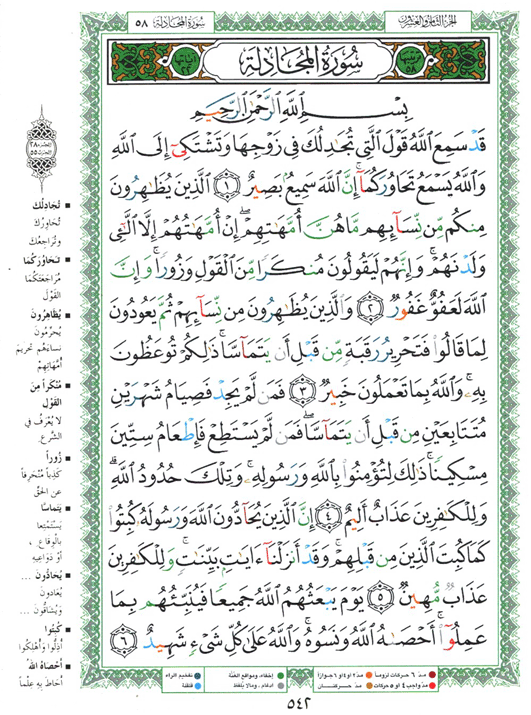 الجزء الثامن والعشرون
سورة المجادلة ٥٨
ترتيبها ٥٨
سُورَةُ المُجَادلة
آياتها ٢٢
بِسْمِ اللَّهِ الرَّحْمَٰنِ الرَّحِيمِ
قَدْ سَمِعَ اللَّهُ قَوْلَ الَّتِي تُجَٰدِلُكَ فِي زَوْجِهَا وَتَشْتَكِىٓ إِلَى اللَّهِ
وَاللَّهُ يَسْمَعُ تَحَاوُرَكُمَآ إِنَّ اللَّهَ سَمِيعٌۢ بَصِيرٌ ١ الَّذِينَ يُظَٰهِرُونَ
مِنكُم مِّن نِّسَآئِهِم مَّا هُنَّ أُمَّهَٰتِهِمْ ۖ إِنْ أُمَّهَٰتُهُمْ إِلَّا الَّٰٓـِٔي
وَلَدْنَهُمْ ۚ وَإِنَّهُمْ لَيَقُولُونَ مُنكَرًا مِّنَ الْقَوْلِ وَزُورًا ۚ وَإِنَّ
اللَّهَ لَعَفُوٌّ غَفُورٌ ٢ وَالَّذِينَ يُظَٰهِرُونَ مِن نِّسَآئِهِمْ ثُمَّ يَعُودُونَ
لِمَا قَالُوا۟ فَتَحْرِيرُ رَقَبَةٍ مِّن قَبْلِ أَن يَتَمَآسَّا ۚ ذَٰلِكُمْ تُوعَظُونَ
بِهِۦ ۚ وَاللَّهُ بِمَا تَعْمَلُونَ خَبِيرٌ ٣ فَمَن لَّمْ يَجِدْ فَصِيَامُ شَهْرَيْنِ
مُتَتَابِعَيْنِ مِن قَبْلِ أَن يَتَمَآسَّا ۖ فَمَن لَّمْ يَسْتَطِعْ فَإِطْعَامُ سِتِّينَ
مِسْكِينًا ۚ ذَٰلِكَ لِتُؤْمِنُوا۟ بِاللَّهِ وَرَسُولِهِۦ ۚ وَتِلْكَ حُدُودُ اللَّهِ ۗ
وَلِلْكَٰفِرِينَ عَذَابٌ أَلِيمٌ ٤ إِنَّ الَّذِينَ يُحَآدُّونَ اللَّهَ وَرَسُولَهُۥ كُبِتُوا۟
كَمَا كُبِتَ الَّذِينَ مِن قَبْلِهِمْ ۚ وَقَدْ أَنزَلْنَآ ءَايَٰتٍۭ بَيِّنَٰتٍ ۚ وَلِلْكَٰفِرِينَ
عَذَابٌ مُّهِينٌ ٥ يَوْمَ يَبْعَثُهُمُ اللَّهُ جَمِيعًا فَيُنَبِّئُهُم بِمَا
عَمِلُوٓا۟ ۚ أَحْصَىٰهُ اللَّهُ وَنَسُوهُ ۚ وَاللَّهُ عَلَىٰ كُلِّ شَىْءٍ شَهِيدٌ ٦
الحزب ٥٥
تُجَادِلُكَ
تُحَاوِرُكَ
وتُراجِعُكَ
تَحَاوُرَكُمَا
مُرَاجَعَتَكُمَا
القَوْلَ
يُظَاهِرُونَ
يُحرِّمُونَ
نساءَهُم تحريمَ
أُمَّهاتِهِمْ
مُنْكَراً مِنَ
القَوْلِ
لا يُعْرَفُ في
الشَّرعِ
زُوراً
كَذِباً مُنْحَرِفاً
عن الحَقِّ
يَتَماسَّا
يَسْتَمْتِعا
بالوِقَاعِ،
أو دَوَاعِيهِ
يُحَادُّونَ ...
يُعَادونَ
وَيُشَاقُّونَ ...
كُبِتُوا
أُذِلُّوا وأُهلِكُوا
أَحْصَاهُ اللهُ
أَحَاطَ بِهِ عِلْماً
مدّ ٦ حركات لزوماً
مدّ ٢ أو ٤ أو ٦ جوازاً
إخفاء، ومواقع الغنّة
تفخيم الراء
مدّ واجب ٤ أو ٥ حركات
مدّ حركتان
إدغام، وما لا يُلفظ
قلقلة
٥٤٢